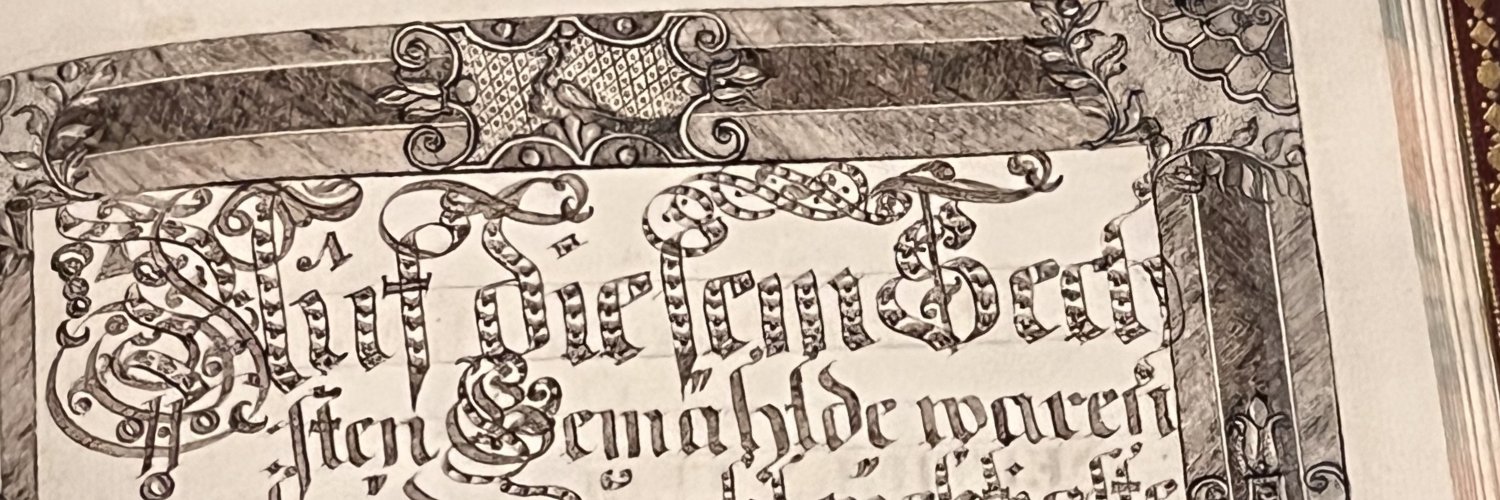 Auf diesem Sech
sten Gemählde waren